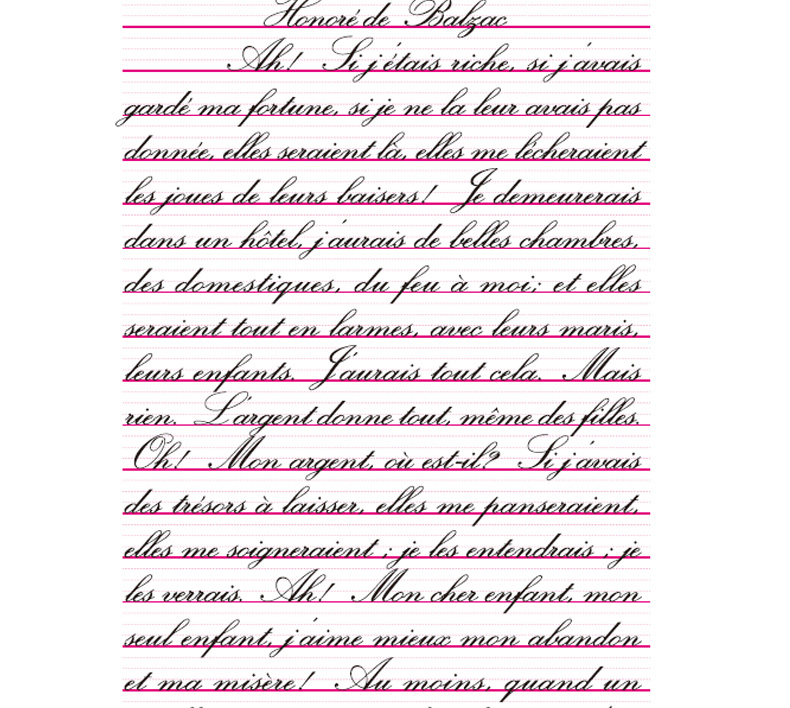 Honoré de Balzac
Ah! Si j'étais riche, si j'avais
gardé ma fortune, si je ne la leur avais pas
donnée, elles seraient là, elles me lécheraient
les joues de leurs baisers! Je demeurerais
dans un hôtel, j'aurais de belles chambres,
des domestiques, du feu à moi; et elles
seraient tout en larmes, avec leurs maris,
leurs enfants. J'aurais tout cela. Mais
rien. L'argent donne tout, même des filles.
Oh! Mon argent, où est-il? Si j'avais
des trésors à laisser, elles me panseraient,
elles me soigneraient ; je les entendrais ; je
les verrais. Ah! Mon cher enfant, mon
seul enfant, j'aime mieux mon abandon
et ma misère! Au moins, quand un